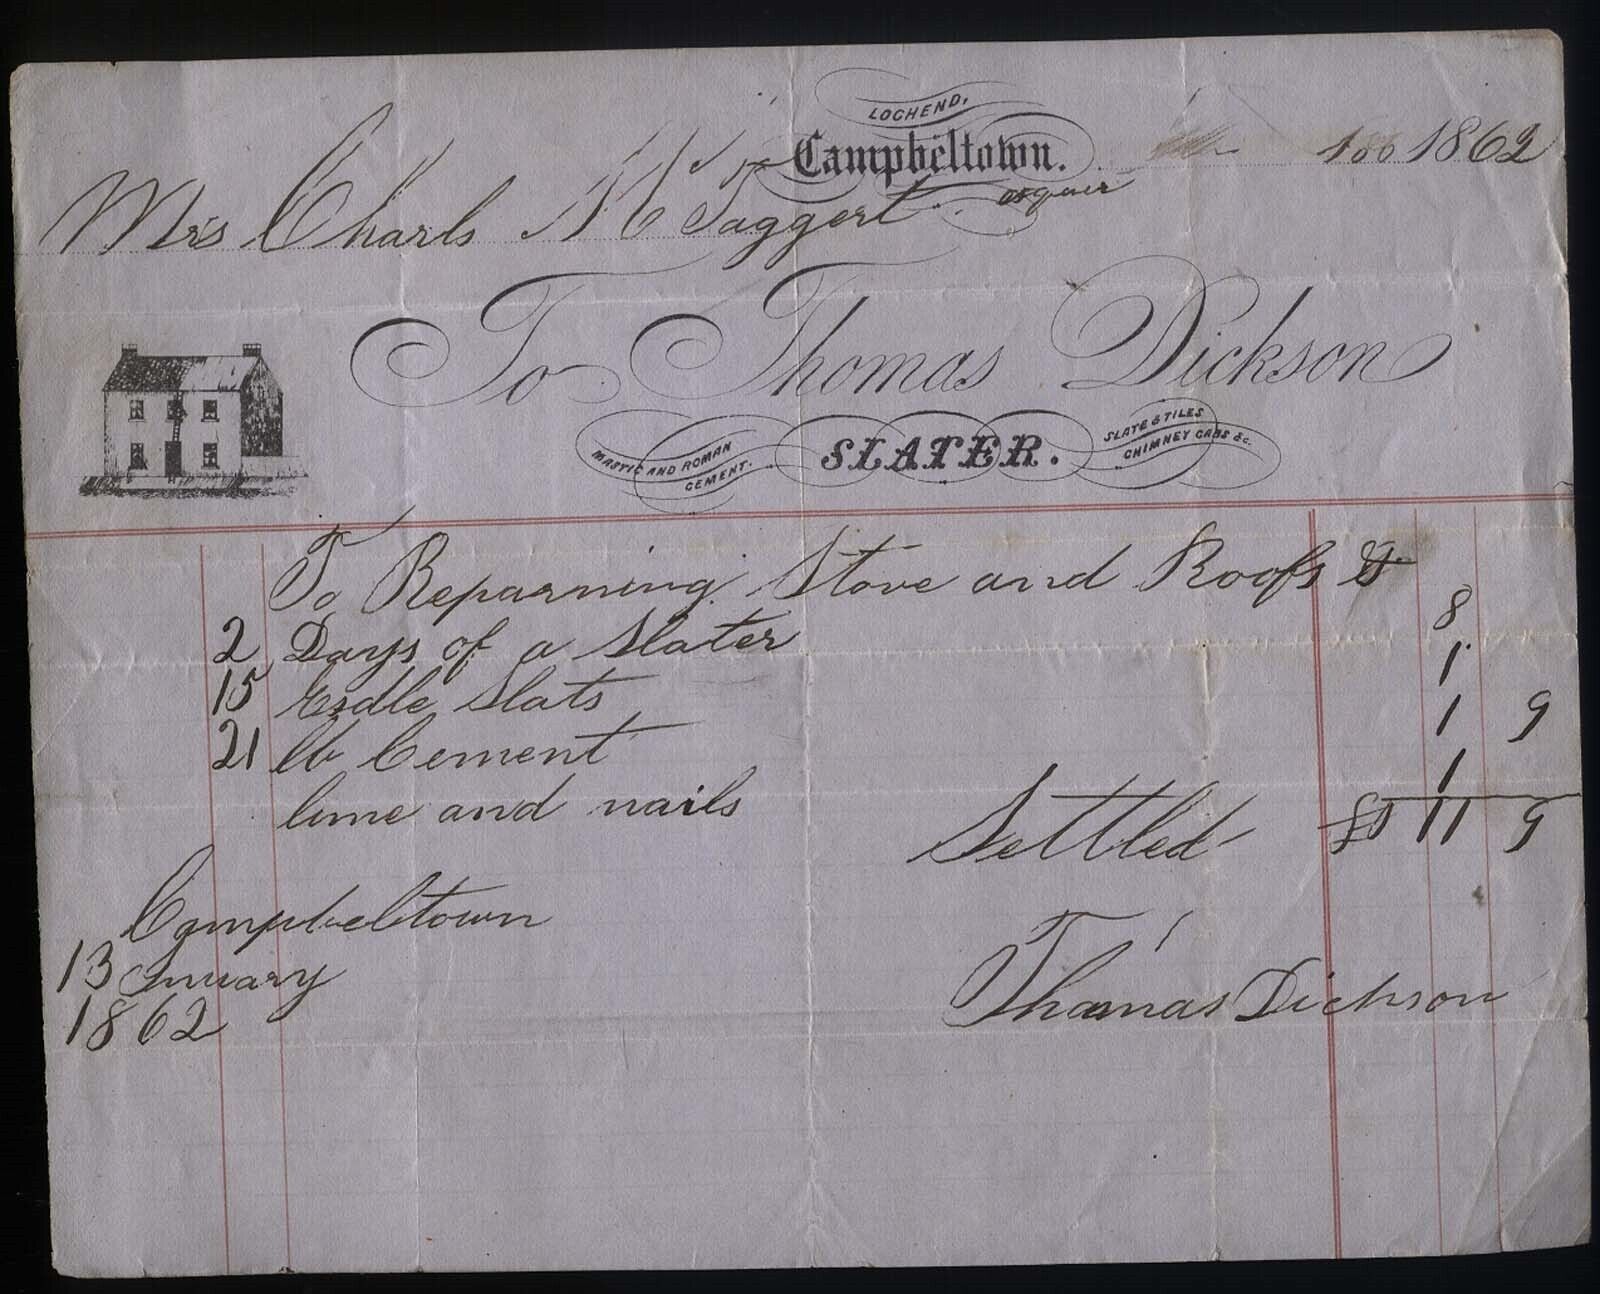 LOCHEND,
Campbeltown. 1862
Mrs Charls McTaggert esquier
To Thomas Dickson
MASTIC AND ROMAN CEMENT. SLATER. SLATE & TILES CHIMNEY CANS &c.
To Reparning Stove and Roofs
2 Days of a Slater 8
15 Esdle Slats 1
21 lb Cement 1 9
lime and nails 1
Settled £0 11 9
Campbeltown
13 Jnuary
1862
Thomas Dickson